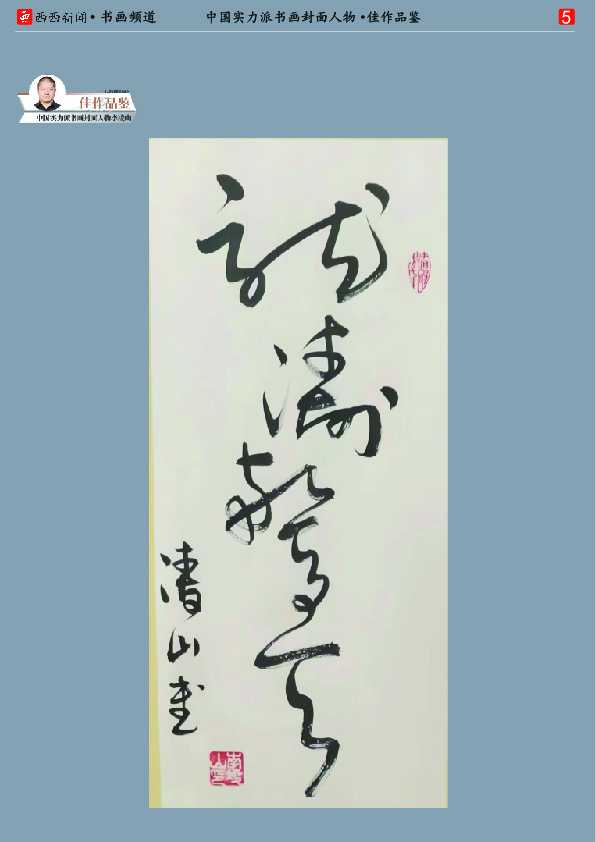 西西新闻•书画频道
中国实力派书画封面人物•佳作品鉴
5
佳作品鉴
中国实力派书画封面人物
龍濤驚天
清山書